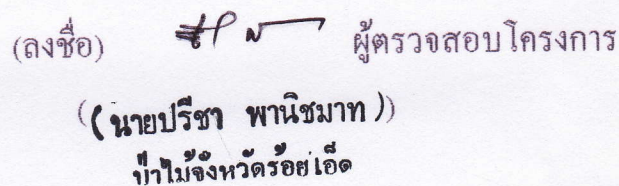 (ลงชื่อ) ผู้ตรวจสอบโครงการ
((นายปรีชา พานิชมาท))
ป่าไม้จังหวัดร้อยเอ็ด